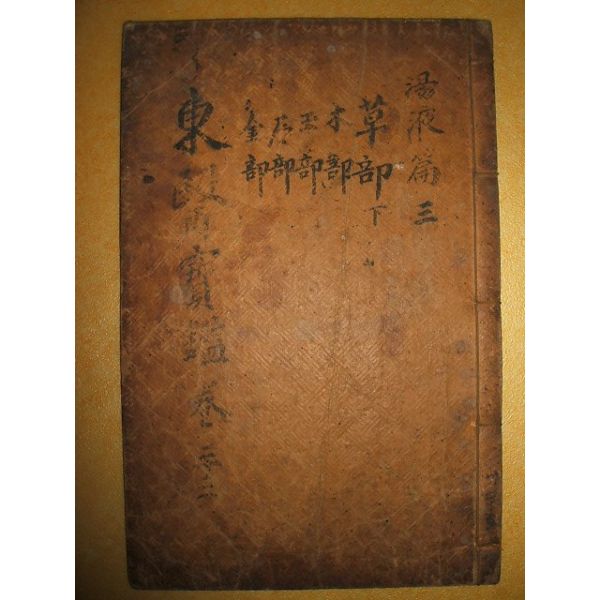 湯液篇三
草部下
木部
玉部
石部
金部
東醫寶鑑 卷二十二